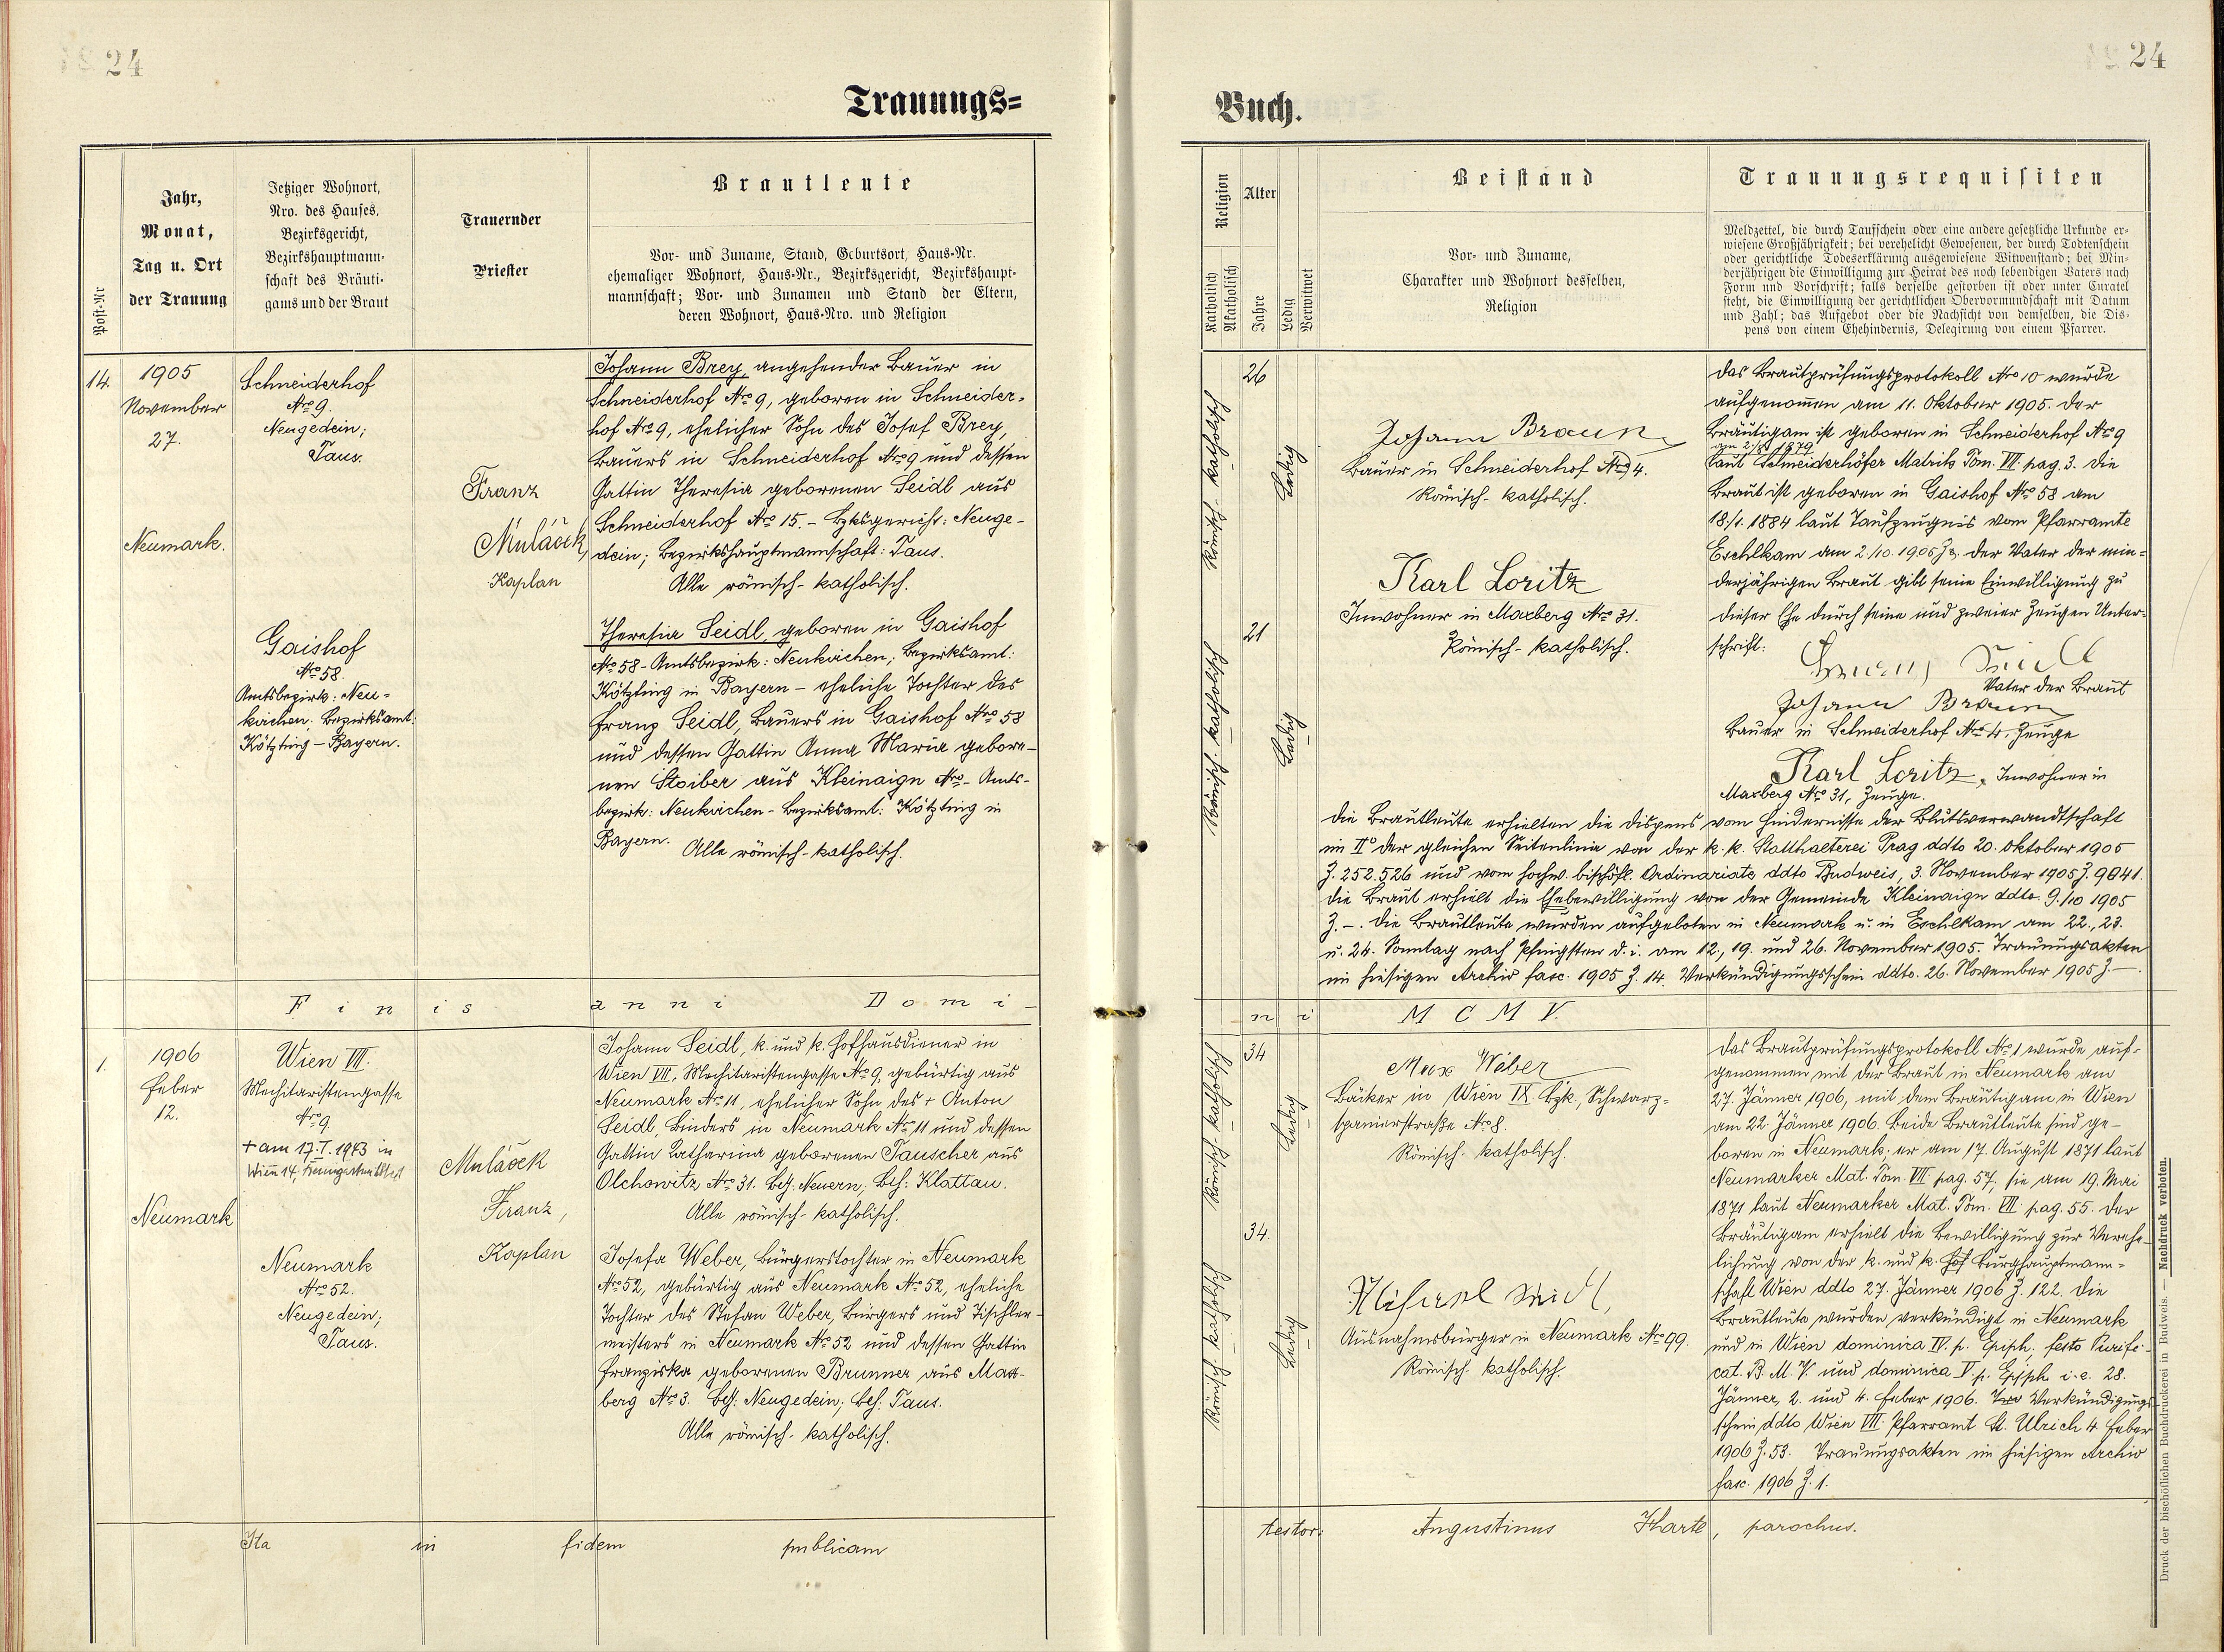 24
24
Trauungs=
Buch.
Post-Nr
Jahr,
Monat,
Tag u. Ort
der Trauung
Jetziger Wohnort,
Nro. des Hauses,
Bezirksgericht,
Bezirkshauptmann-
schaft des Bräuti-
gams und der Braut
Trauernder
Priester
Brautleute
Vor- und Zuname, Stand, Geburtsort, Haus-Nr.
ehemaliger Wohnort, Haus-Nr., Bezirksgericht, Bezirkshaupt-
mannschaft; Vor- und Zunamen und Stand der Eltern,
deren Wohnort, Haus-Nro. und Religion
Religion
Katholisch
Akatholisch
Alter
Jahre
Ledig
Verwitwet
Beistand
Vor- und Zuname,
Charakter und Wohnort desselben,
Religion
Trauungsrequisiten
Meldzettel, die durch Taufschein oder eine andere gesetzliche Urkunde er-
wiesene Großjährigkeit; bei verehelicht Gewesenen, der durch Todtenschein
oder gerichtliche Todeserklärung ausgewiesene Witwenstand; bei Min-
derjährigen die Einwilligung zur Heirat des noch lebendigen Vaters nach
Form und Vorschrift; falls derselbe gestorben ist oder unter Curatel
steht, die Einwilligung der gerichtlichen Obervormundschaft mit Datum
und Zahl; das Aufgebot oder die Nachsicht von demselben, die Dis-
pens von einem Ehehindernis, Delegirung von einem Pfarrer.
14.
1905
November
27.
Neumark.
Schneiderhof
Nro 9.
Neugedein;
Taus.
Gaishof
Nro 58.
Amtsbezirk: Neu-
kirchen; Bezirksamt:
Kötzting – Bayern.
Franz
Mulaček,
Kaplan
Johann Brey, angehender Bauer in
Schneiderhof Nro 9, geboren in Schneider-
hof Nro 9, ehelicher Sohn des Josef Brey,
Bauers in Schneiderhof Nro 9 und dessen
Gattin Theresia geborenen Seidl aus
Schneiderhof Nro 15. – Bzksgericht: Neuge-
dein; Bezirkshauptmannschaft: Taus.
Alle römisch-katholisch.
Theresia Seidl, geboren in Gaishof
Nro 58 – Amtsbezirk: Neukirchen; Bezirksamt:
Kötzting in Bayern – eheliche Tochter des
Franz Seidl, Bauers in Gaishof Nro 58
und dessen Gattin Anna Maria gebore-
nen Stoiber aus Kleinaign Nro – Amts-
bezirk: Neukirchen – Bezirksamt: Kötzting in
Bayern. Alle römisch-katholisch.
Römisch-katholisch
26
Ledig
Römisch-katholisch
21
Ledig
Johann Braun
Bauer in Schneiderhof Nro 4.
Römisch-katholisch.
Karl Loritz
Inwohner in Maxberg Nro 31.
Römisch-katholisch.
Das Brautprüfungsprotokoll Nro 10 wurde
aufgenommen am 11. Oktober 1905. Der
Bräutigam ist geboren in Schneiderhof Nro 9
1879
laut Schneiderhöfer Matrik Tom. VII. pag. 3. Die
Braut ist geboren in Gaishof Nro 58 am
18./1. 1884 laut Taufzeugnis vom Pfarramte
Eschlkam am 2./10. 1905 Der Vater der min-
derjährigen Braut gibt seine Einwilligung zu
dieser Ehe durch seine und zweier Zeugen Unter-
schrift:
Franz Seidl
Vater der Braut
Johann Braun
Bauer in Schneiderhof Nro 4, Zeuge
Karl Loritz, Inwohner in
Maxberg Nro 31, Zeuge.
Die Brautleute erhielten die Dispens vom Hindernisse der Blutsverwandtschaft
im II° der gleichen Seitenlinie von der k. k. Statthalterei Prag ddto 20. Oktober 1905
Z. 252.526 und vom hochw. bischöfl. Ordinariate ddto Budweis, 3. November 1905 Z. 9841.
Die Braut erhielt die Ehebewilligung von der Gemeinde Kleinaign ddto. 9./10 1905
Z. –. Die Brautleute wurden aufgeboten in Neumark u. in Eschlkam am 22., 23.
u. 24. Sonntag nach Pfingsten d. i. am 12., 19. und 26. November 1905. Trauungsakten
im hiesigen Archiv fasc. 1905 Z. 14. Verkündigungsschein ddto. 26. November 1905 Z. –.
Finis anni Domi-
ni MCMV.
1.
1906
Feber
12.
Neumark
Wien VII.
Mechitaristengasse
Nro 9.
+ am 17.I. 1943 in
Wien 14,
Neumark
Nro 52.
Neugedein;
Taus.
Mulaček
Franz,
Kaplan
Johann Seidl, k. und k. Hofhausdiener in
Wien VII, Mechitaristengasse Nro 9, gebürtig aus
Neumark Nro 11, ehelicher Sohn des + Anton
Seidl, Binders in Neumark Nro 11 und dessen
Gattin Katharina geborenen Tauscher aus
Olchowitz Nro 31. Bzg: Neuern; Bzh: Klattau.
Alle römisch-katholisch.
Josefa Weber, Bürgerstochter in Neumark
Nro 52, gebürtig aus Neumark Nro 52, eheliche
Tochter des Stefan Weber, Bürgers und Tischler-
meisters in Neumark Nro 52 und dessen Gattin
Franziska geborenen Brunner aus Max-
berg Nro 3. Bzg: Neugedein; Bzh: Taus.
Alle römisch-katholisch.
Römisch-katholisch
34
Ledig
Römisch-katholisch
34.
Ledig
Max Weber
Bäcker in Wien IX. Bzk, Schwarz-
spanierstraße Nro 8.
Römisch-katholisch.
Michael Seidl,
Ausnahmsbürger in Neumark Nro 99.
Römisch-katholisch.
Das Brautprüfungsprotokoll Nro 1 wurde auf-
genommen mit der Braut in Neumark am
27. Jänner 1906, mit dem Bräutigam in Wien
am 22. Jänner 1906. Beide Brautleute sind ge-
boren in Neumark; er am 17. August 1871 laut
Neumarker Mat. Tom. VII pag. 57, sie am 19. Mai
1871 laut Neumarker Mat. Tom. VII pag. 55. Der
Bräutigam erhielt die Bewilligung zur Vereh-
lichung von der k. und k. Hof Burghauptmann-
schaft Wien ddto 27. Jänner 1906 Z. 122. Die
Brautleute wurden verkündigt in Neumark
und in Wien dominica IV. p. Epiph. festo Purifi-
cat. B. M. V. und dominica V. p. Epiph. i. e. 28.
Jänner, 2. und 4. Feber 1906. Verkündigungs-
schein ddto Wien VII. Pfarramt St. Ulrich 4. Feber
1906 Z. 53. Trauungsakten im hiesigen Archiv
fasc. 1906 Z. 1.
Ita in fidem publicam
testor: Augustinus Harte, parochus.
Druck der bischöflichen Buchdruckerei in Budweis. — Nachdruck verboten.